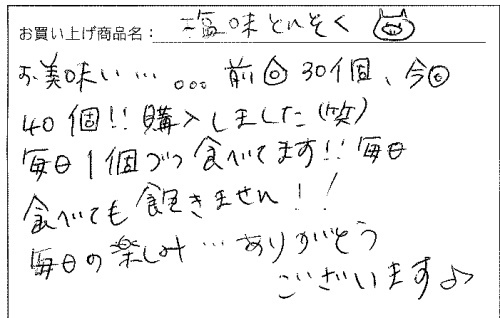 お買い上げ商品名： 塩味とんそく
お美味い…。。。前回30個、今回
40個!!購入しました(笑)
毎日1個づつ食べてます!!毎日
食べても飽きません!!
毎日の楽しみ…ありがとう
ございます♪